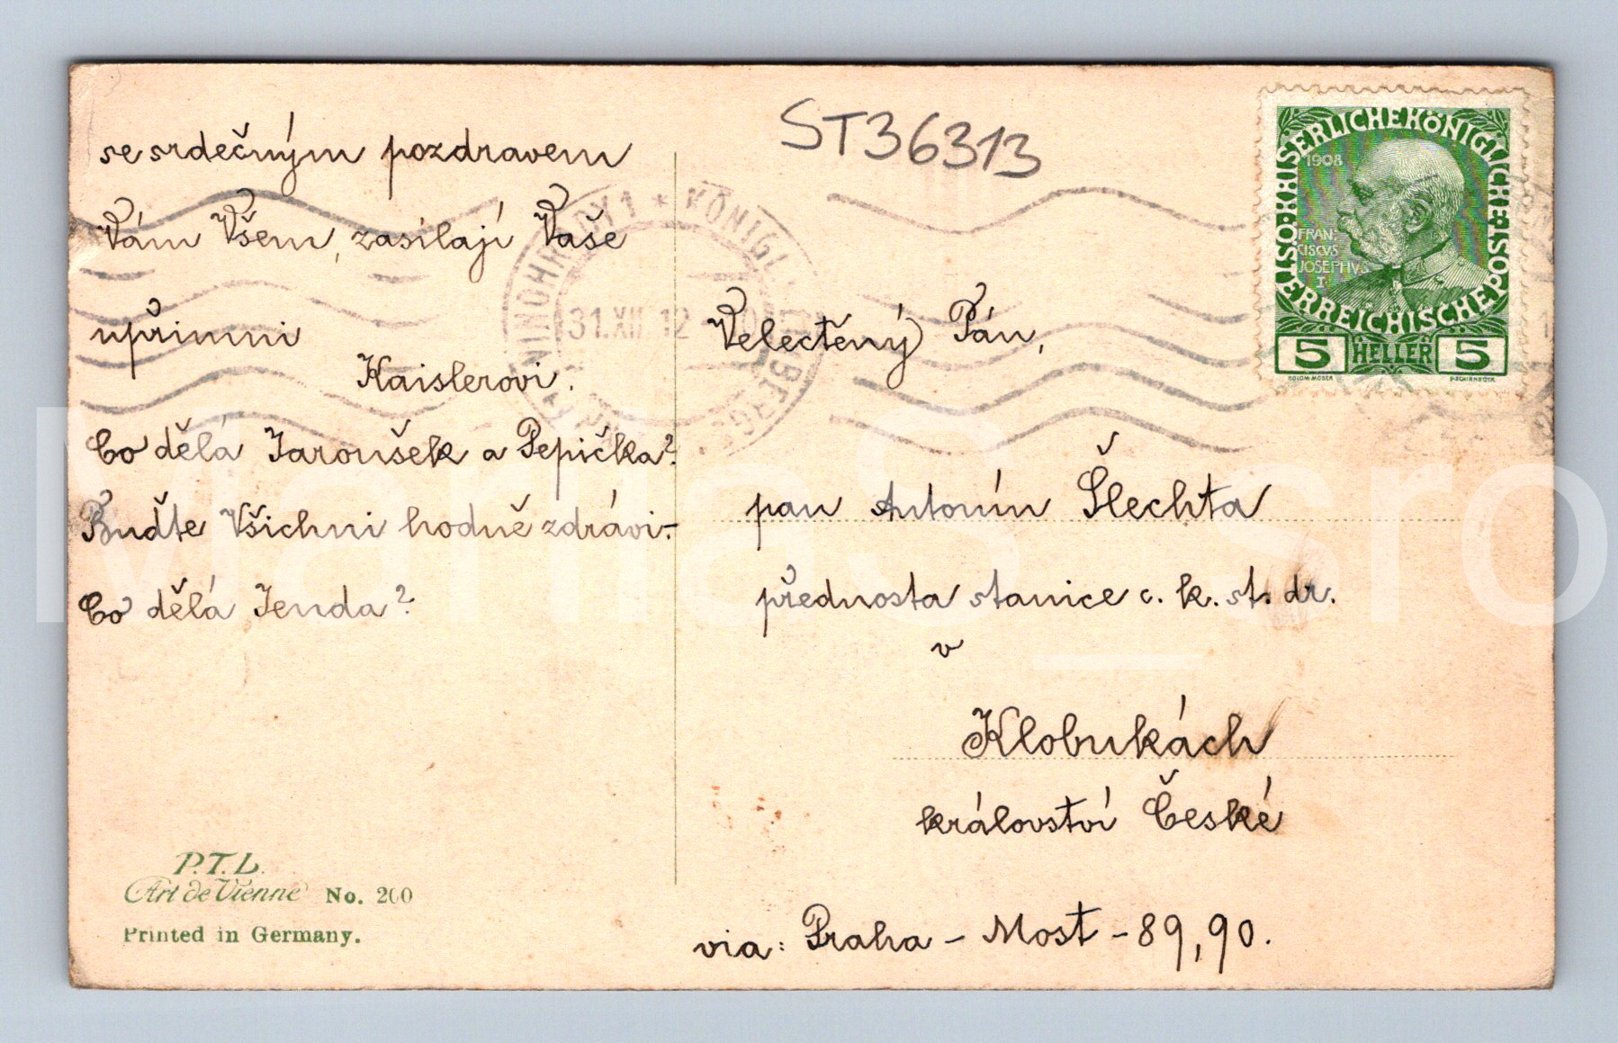 ST36313
se srdečným pozdravem
Vám Všem, zasílají Vaše
upřimni
Kaislerovi.
Co dělá Jaroušek a Pepička?
Buďte Všichni hodně zdrávi.-
Co dělá Jenda?
P.T.L.
Art de Vienne No. 200
Printed in Germany.
VINOHRADY 1 * KÖNIGL. WEINBERGE
31.XII 12
KAISERLICHE KÖNIGLICHE ÖSTERREICHISCHE POST
1908
FRAN
CISCVS
JOSEPHVS
I
5 HELLER 5
KOLOM. MOSER
Velectěný Pán,
pan Antonín Šlechta
přednosta stanice c. k. st. dr.
v
Klobukách
království České
via: Praha - Most - 89, 90.